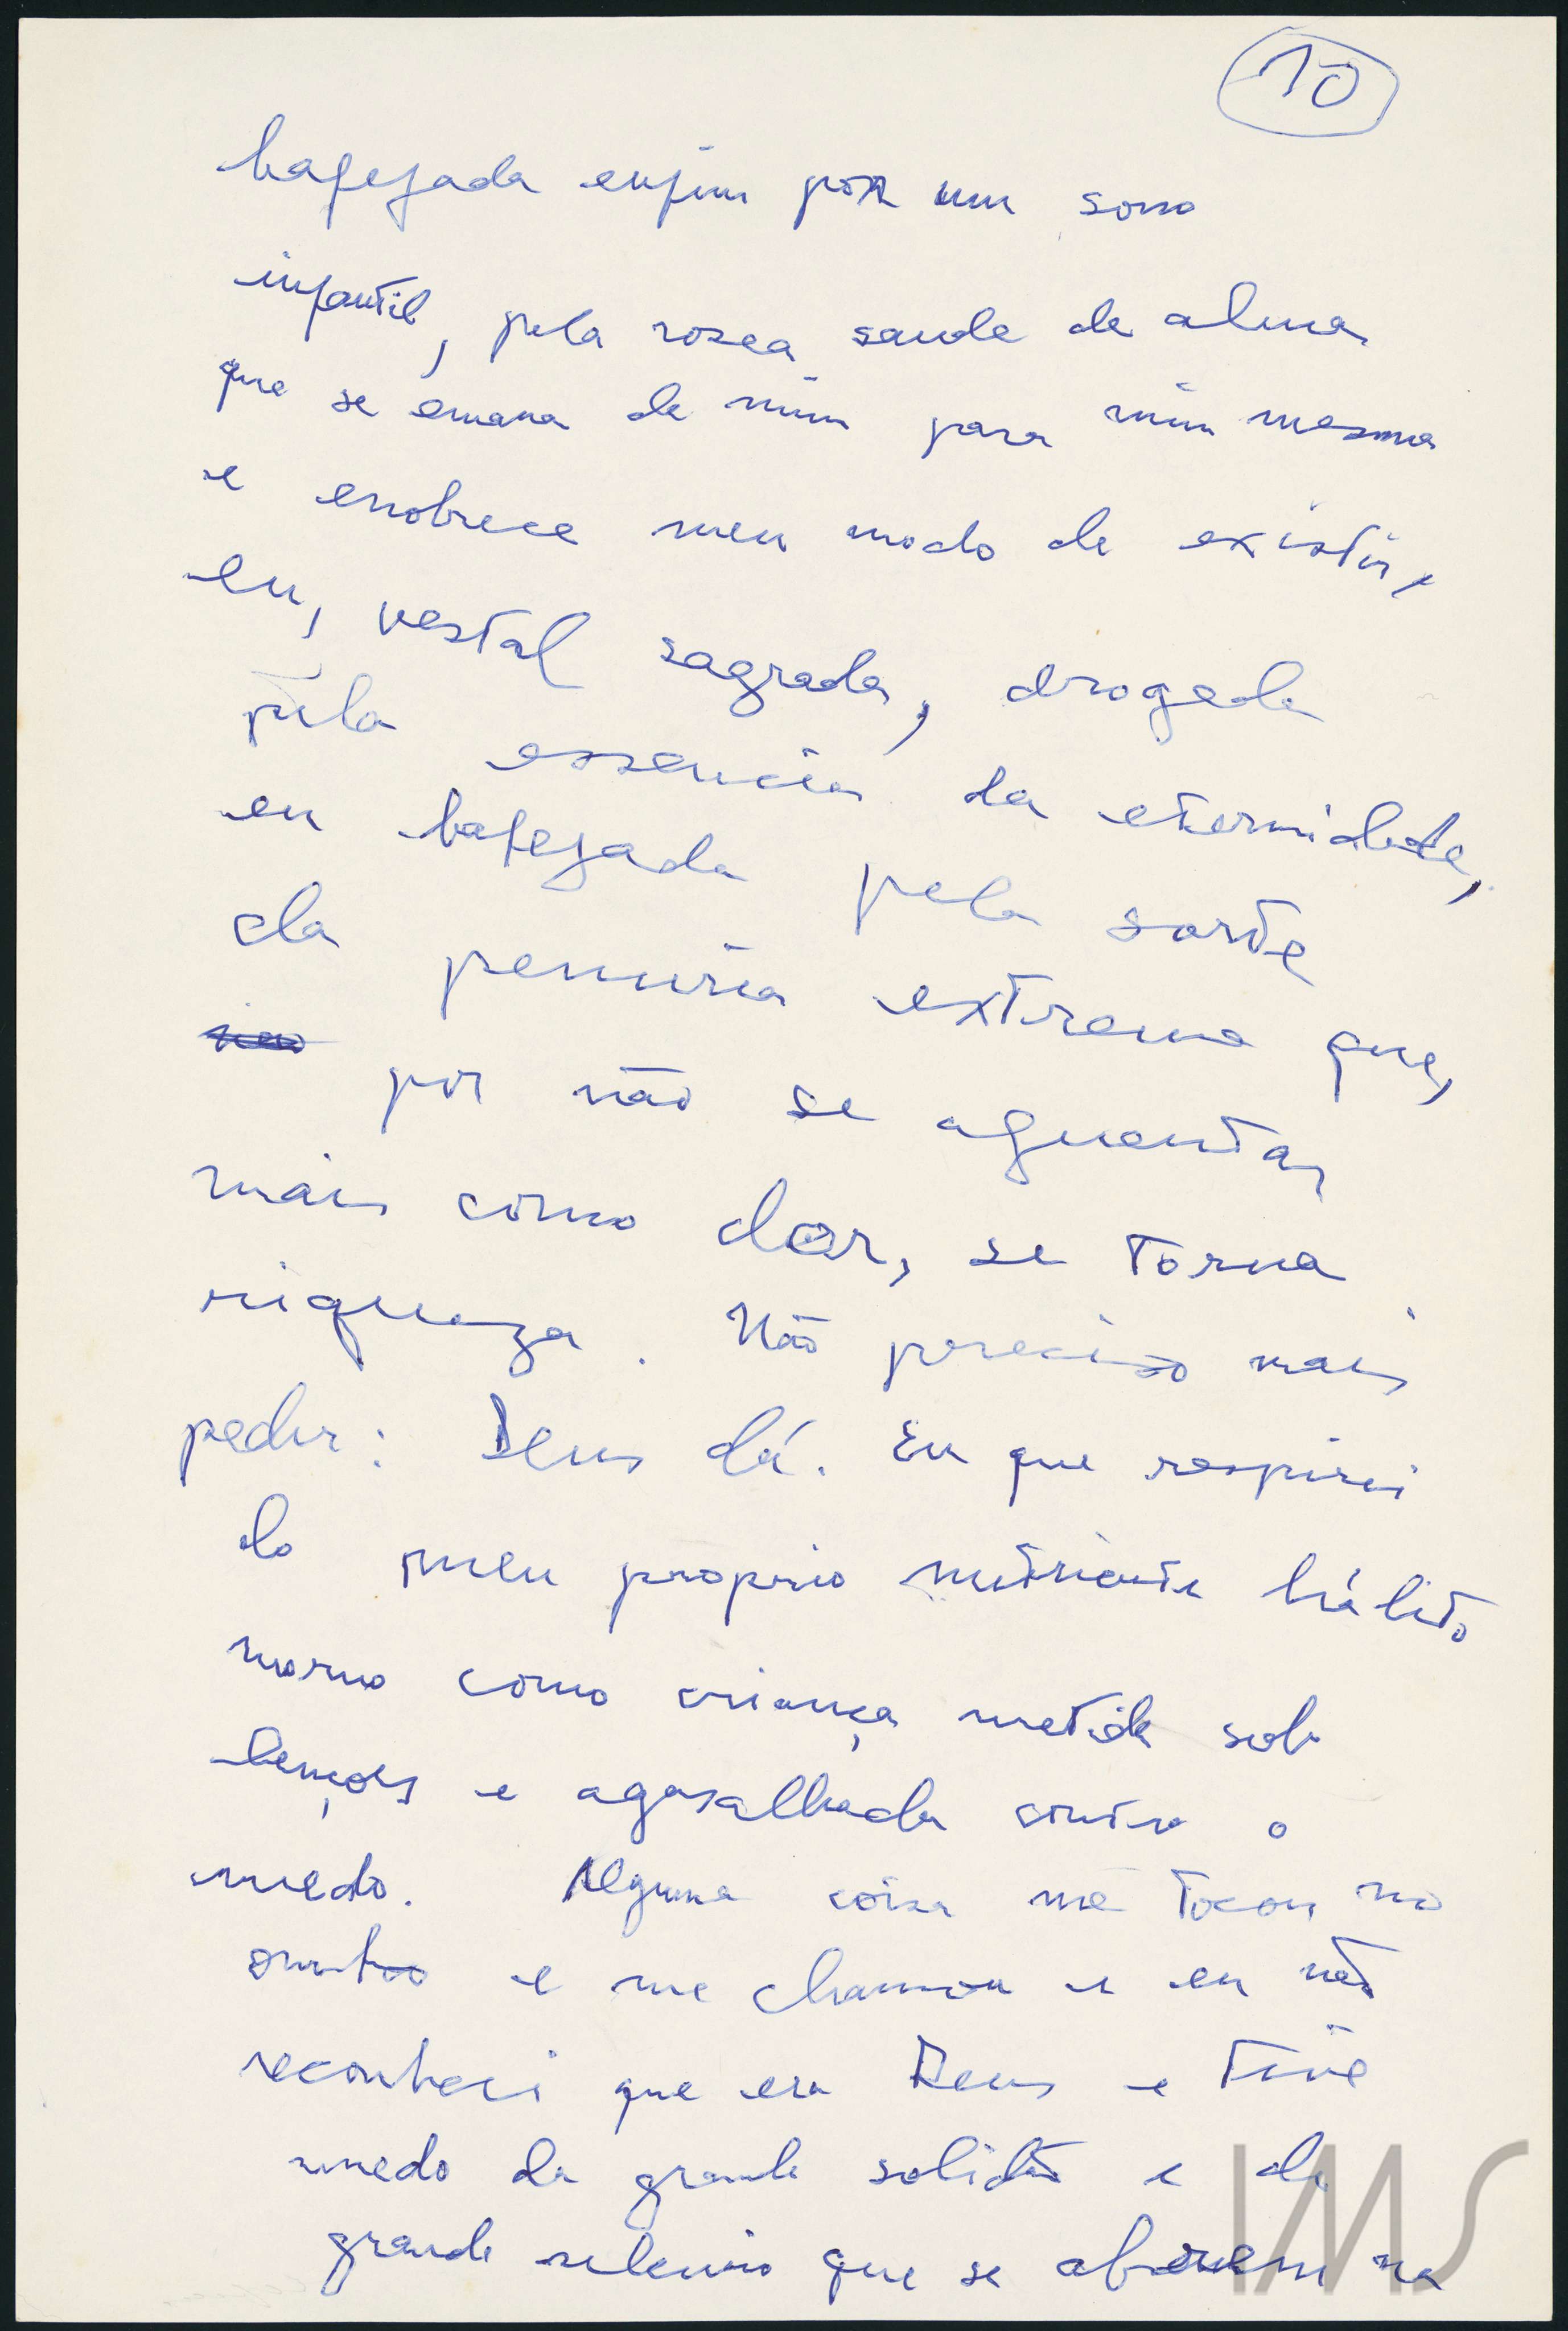 10
bafejada enfim por um sono
infantil, pela rosea saude de alma
que se emana de mim para mim mesma
e enobrece meu modo de existir,
eu, vestal sagrada, drogada
pela essencia da eternidade,
eu bafejada pela sorte
da penuria extrema que,
por não se aguentar
mais como dor, se torna
riqueza. Não preciso mais
pedir: Deus dá. Eu que respirei
do meu proprio nutriente hálito
morno como criança metida sob
lençois e agasalhada contra o
medo. Alguma coisa me tocou no
ombro e me chamou e eu não
reconheci que era Deus e tive
medo da grande solidão e do
grande silencio que se abrirem na
IMS